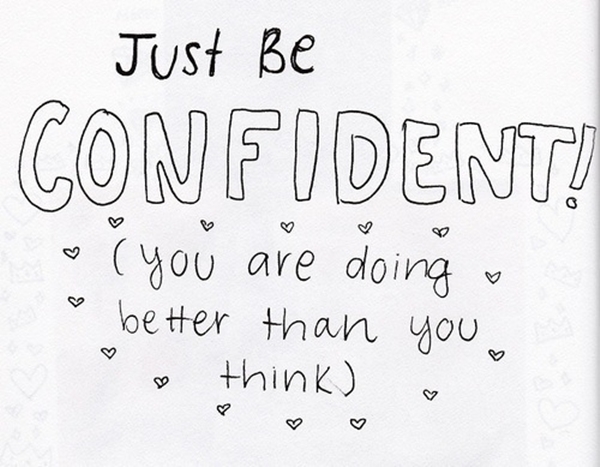 Just Be
CONFIDENT!
(you are doing
better than you
think)